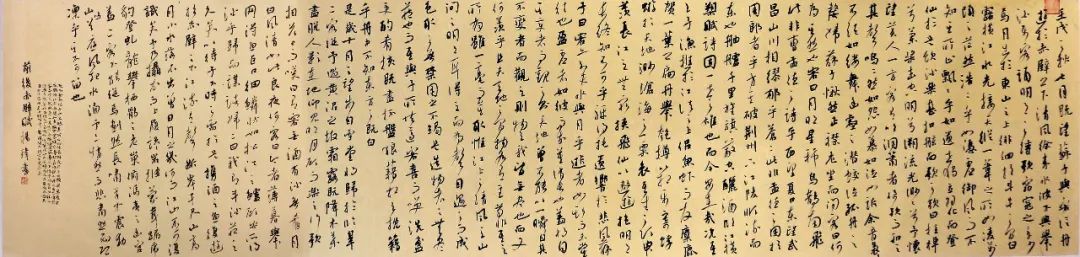 壬戌之秋七月既望蘇子與客泛舟
遊於赤壁之下清風徐來水波不興舉
酒屬客誦明月之詩歌窈窕之章少
焉月出於東山之上徘徊於斗牛之間白
露橫江水光接天縱一葦之所如凌萬
頃之茫然浩浩乎如馮虛御風而不
知其所止飄飄乎如遺世獨立羽化而登
仙於是飲酒樂甚扣舷而歌之歌曰桂棹
兮蘭槳擊空明兮溯流光渺渺兮予懷
望美人兮天一方客有吹洞簫者倚歌而和之
其聲嗚嗚然如怨如慕如泣如訴餘音裊裊
不絕如縷舞幽壑之潛蛟泣孤舟之
嫠婦蘇子愀然正襟危坐而問客曰何
為其然也客曰月明星稀烏鵲南飛
此非曹孟德之詩乎西望夏口東望武
昌山川相繆鬱乎蒼蒼此非孟德之困於
周郎者乎方其破荊州下江陵順流而
東也舳艫千里旌旗蔽空釃酒臨江橫
槊賦詩固一世之雄也而今安在哉況吾
與子漁樵於江渚之上侶魚蝦而友麋鹿
駕一葉之扁舟舉匏樽以相屬寄蜉
蝣於天地渺滄海之一粟哀吾生之須臾
羨長江之無窮挾飛仙以遨遊抱明月
而長終知不可乎驟得托遺響於悲風蘇
子曰客亦知夫水與月乎逝者如斯而未嘗
往也盈虛者如彼而卒莫消長也蓋將自
其變者而觀之則天地曾不能以一瞬自其
不變者而觀之則物與我皆無盡也而又
何羨乎且夫天地之間物各有主苟非吾之
所有雖一毫而莫取惟江上之清風與山
間之明月耳得之而為聲目遇之而成
色取之無禁用之不竭是造物者之無盡
藏也而吾與子之所共適客喜而笑洗盞
更酌肴核既盡杯盤狼藉相與枕藉
乎舟中不知東方之既白
是歲十月之望步自雪堂將歸於臨皋
二客從予過黃泥之坂霜露既降木葉
盡脫人影在地仰見明月顧而樂之行歌
相答已而嘆曰有客無酒有酒無肴月
白風清如此良夜何客曰今者薄暮舉
網得魚巨口細鱗狀如松江之鱸顧安所得
酒乎歸而謀諸婦婦曰我有斗酒藏之
久矣以待子不時之需於是攜酒與魚復遊
於赤壁之下江流有聲斷岸千尺山高月小
水落石出曾日月之幾何而江山不可復
識矣予乃攝衣而上履巉巖披蒙茸踞虎
豹登虬龍攀棲鶻之危巢俯馮夷之幽宮
蓋二客不能從焉劃然長嘯草木震動
山鳴谷應風起水涌予亦悄然而悲肅然而恐
凜乎其不可留也
前後赤壁賦